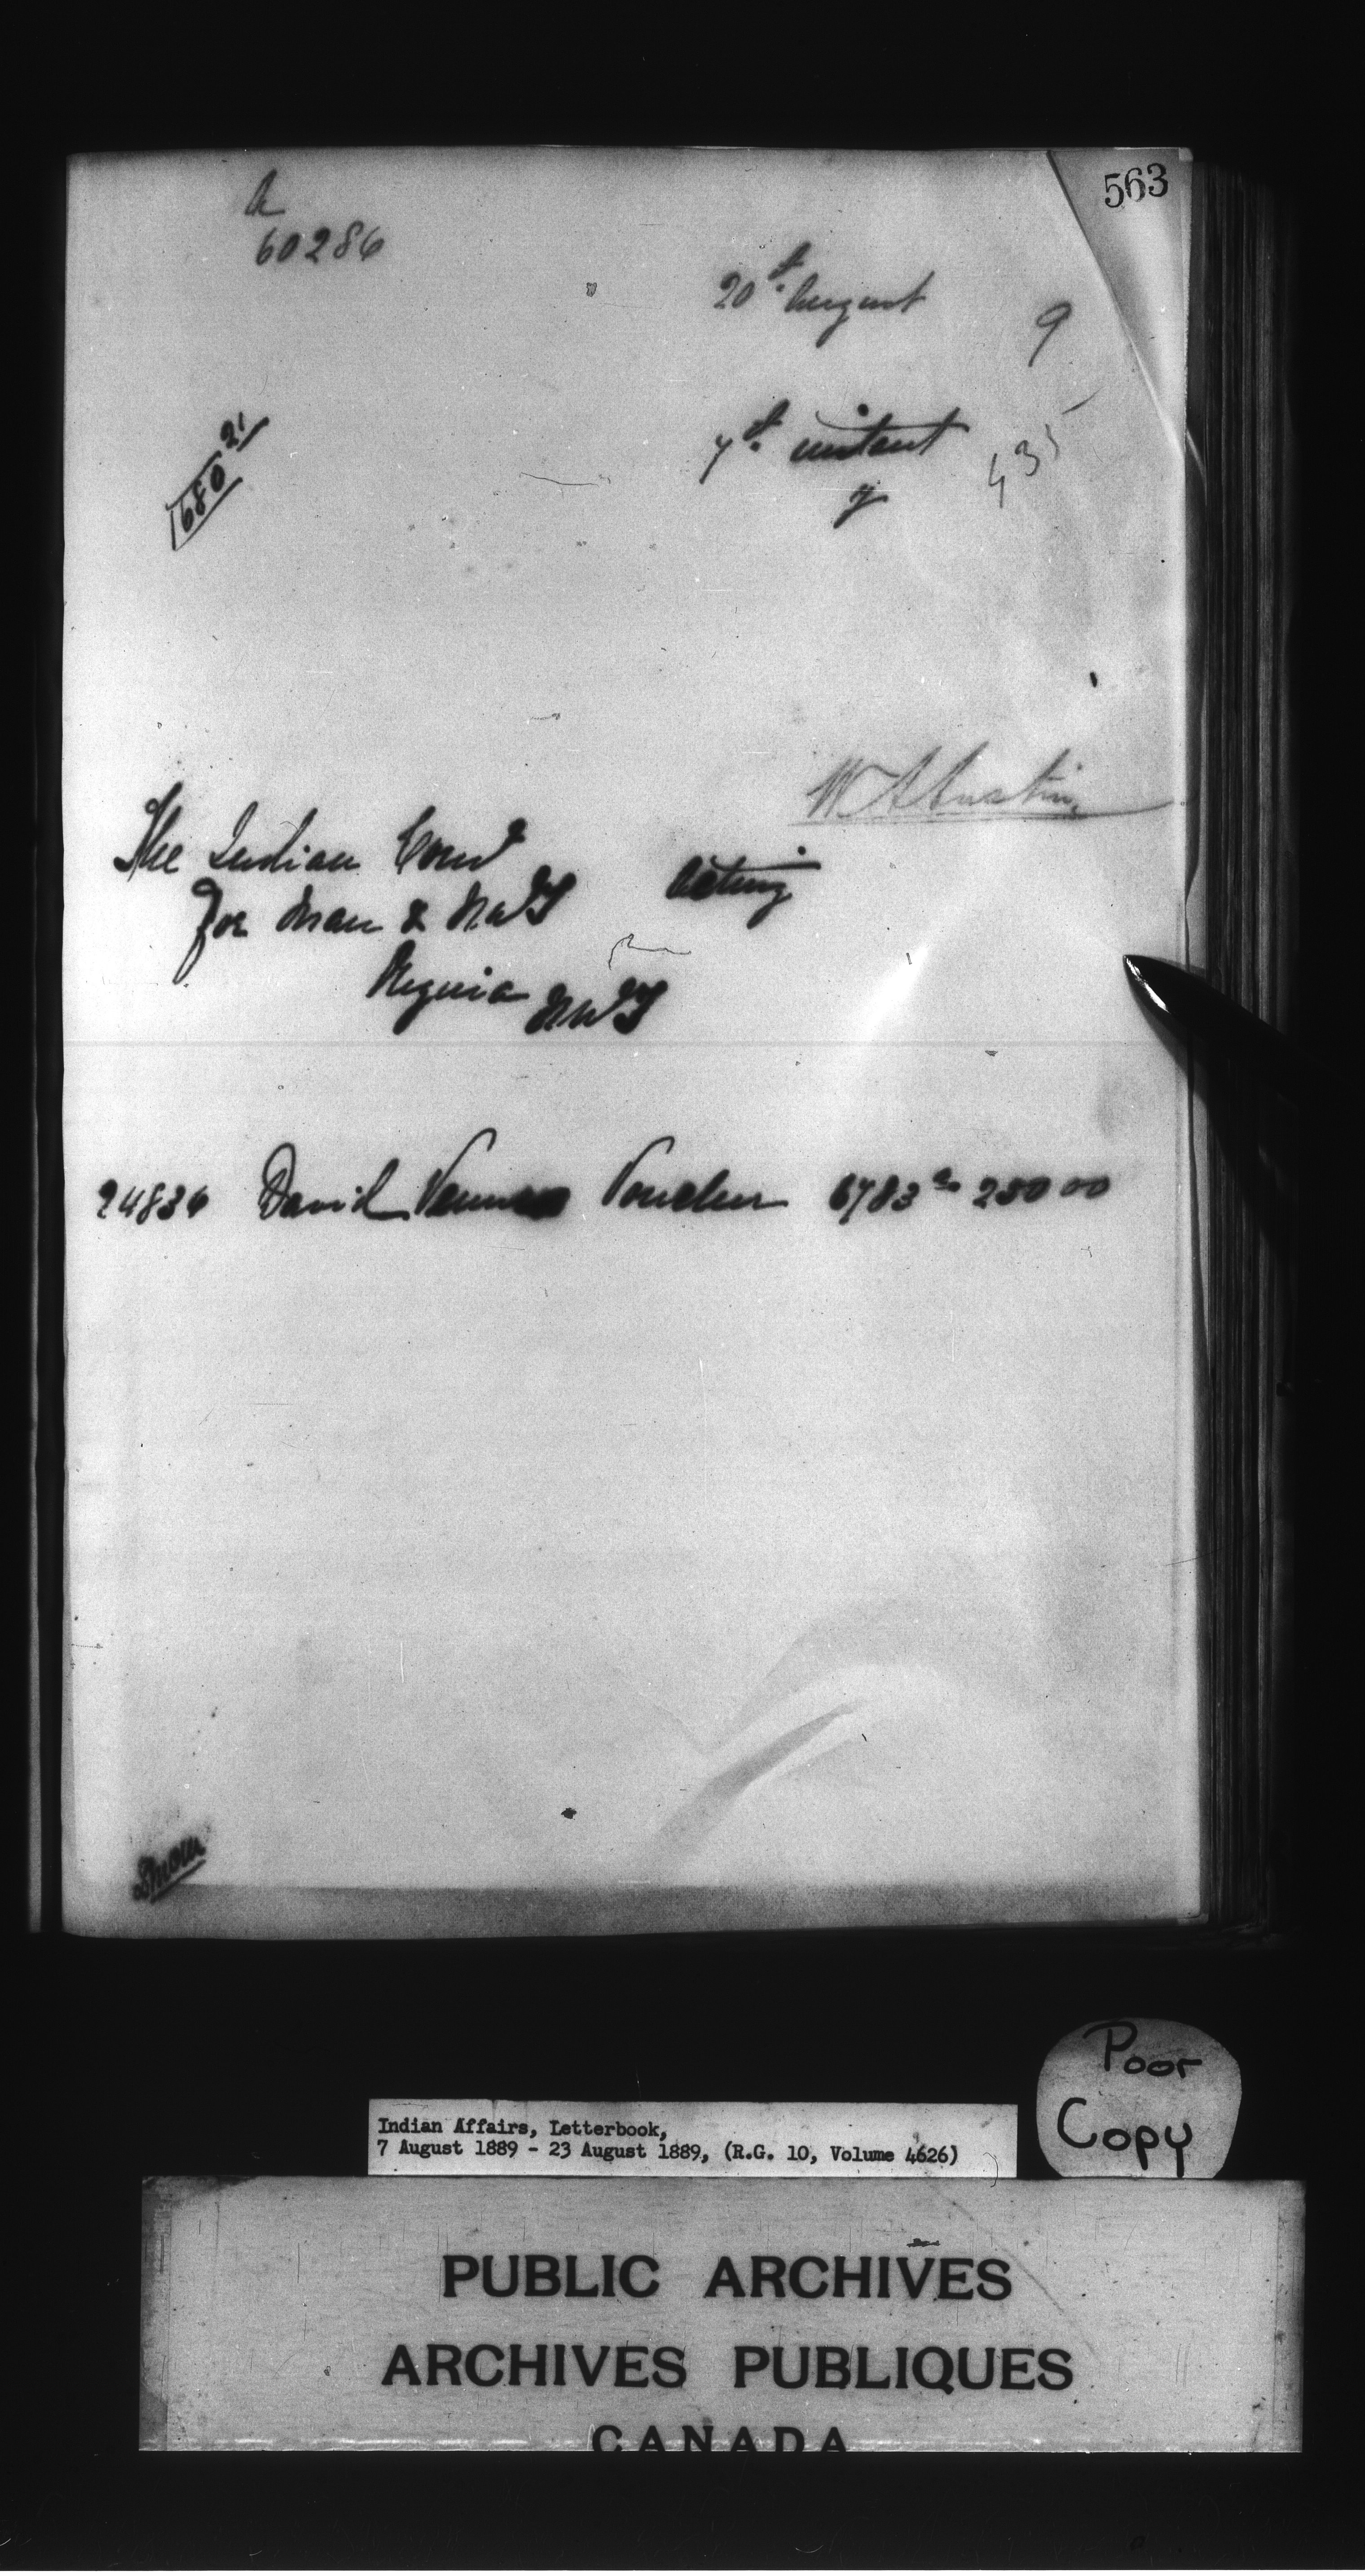 563
A
60286
20th August 9
1680 21
7th instant 435
y
W A Austin
The Indian Comr
For Man & N.W.T
Acting
Regina NWT
24836 David Venne Voucher 6783 250 00
Poor
Copy
Indian Affairs, Letterbook,
7 August 1889 - 23 August 1889, (R.G. 10, Volume 4626)
PUBLIC ARCHIVES
ARCHIVES PUBLIQUES
CANADA